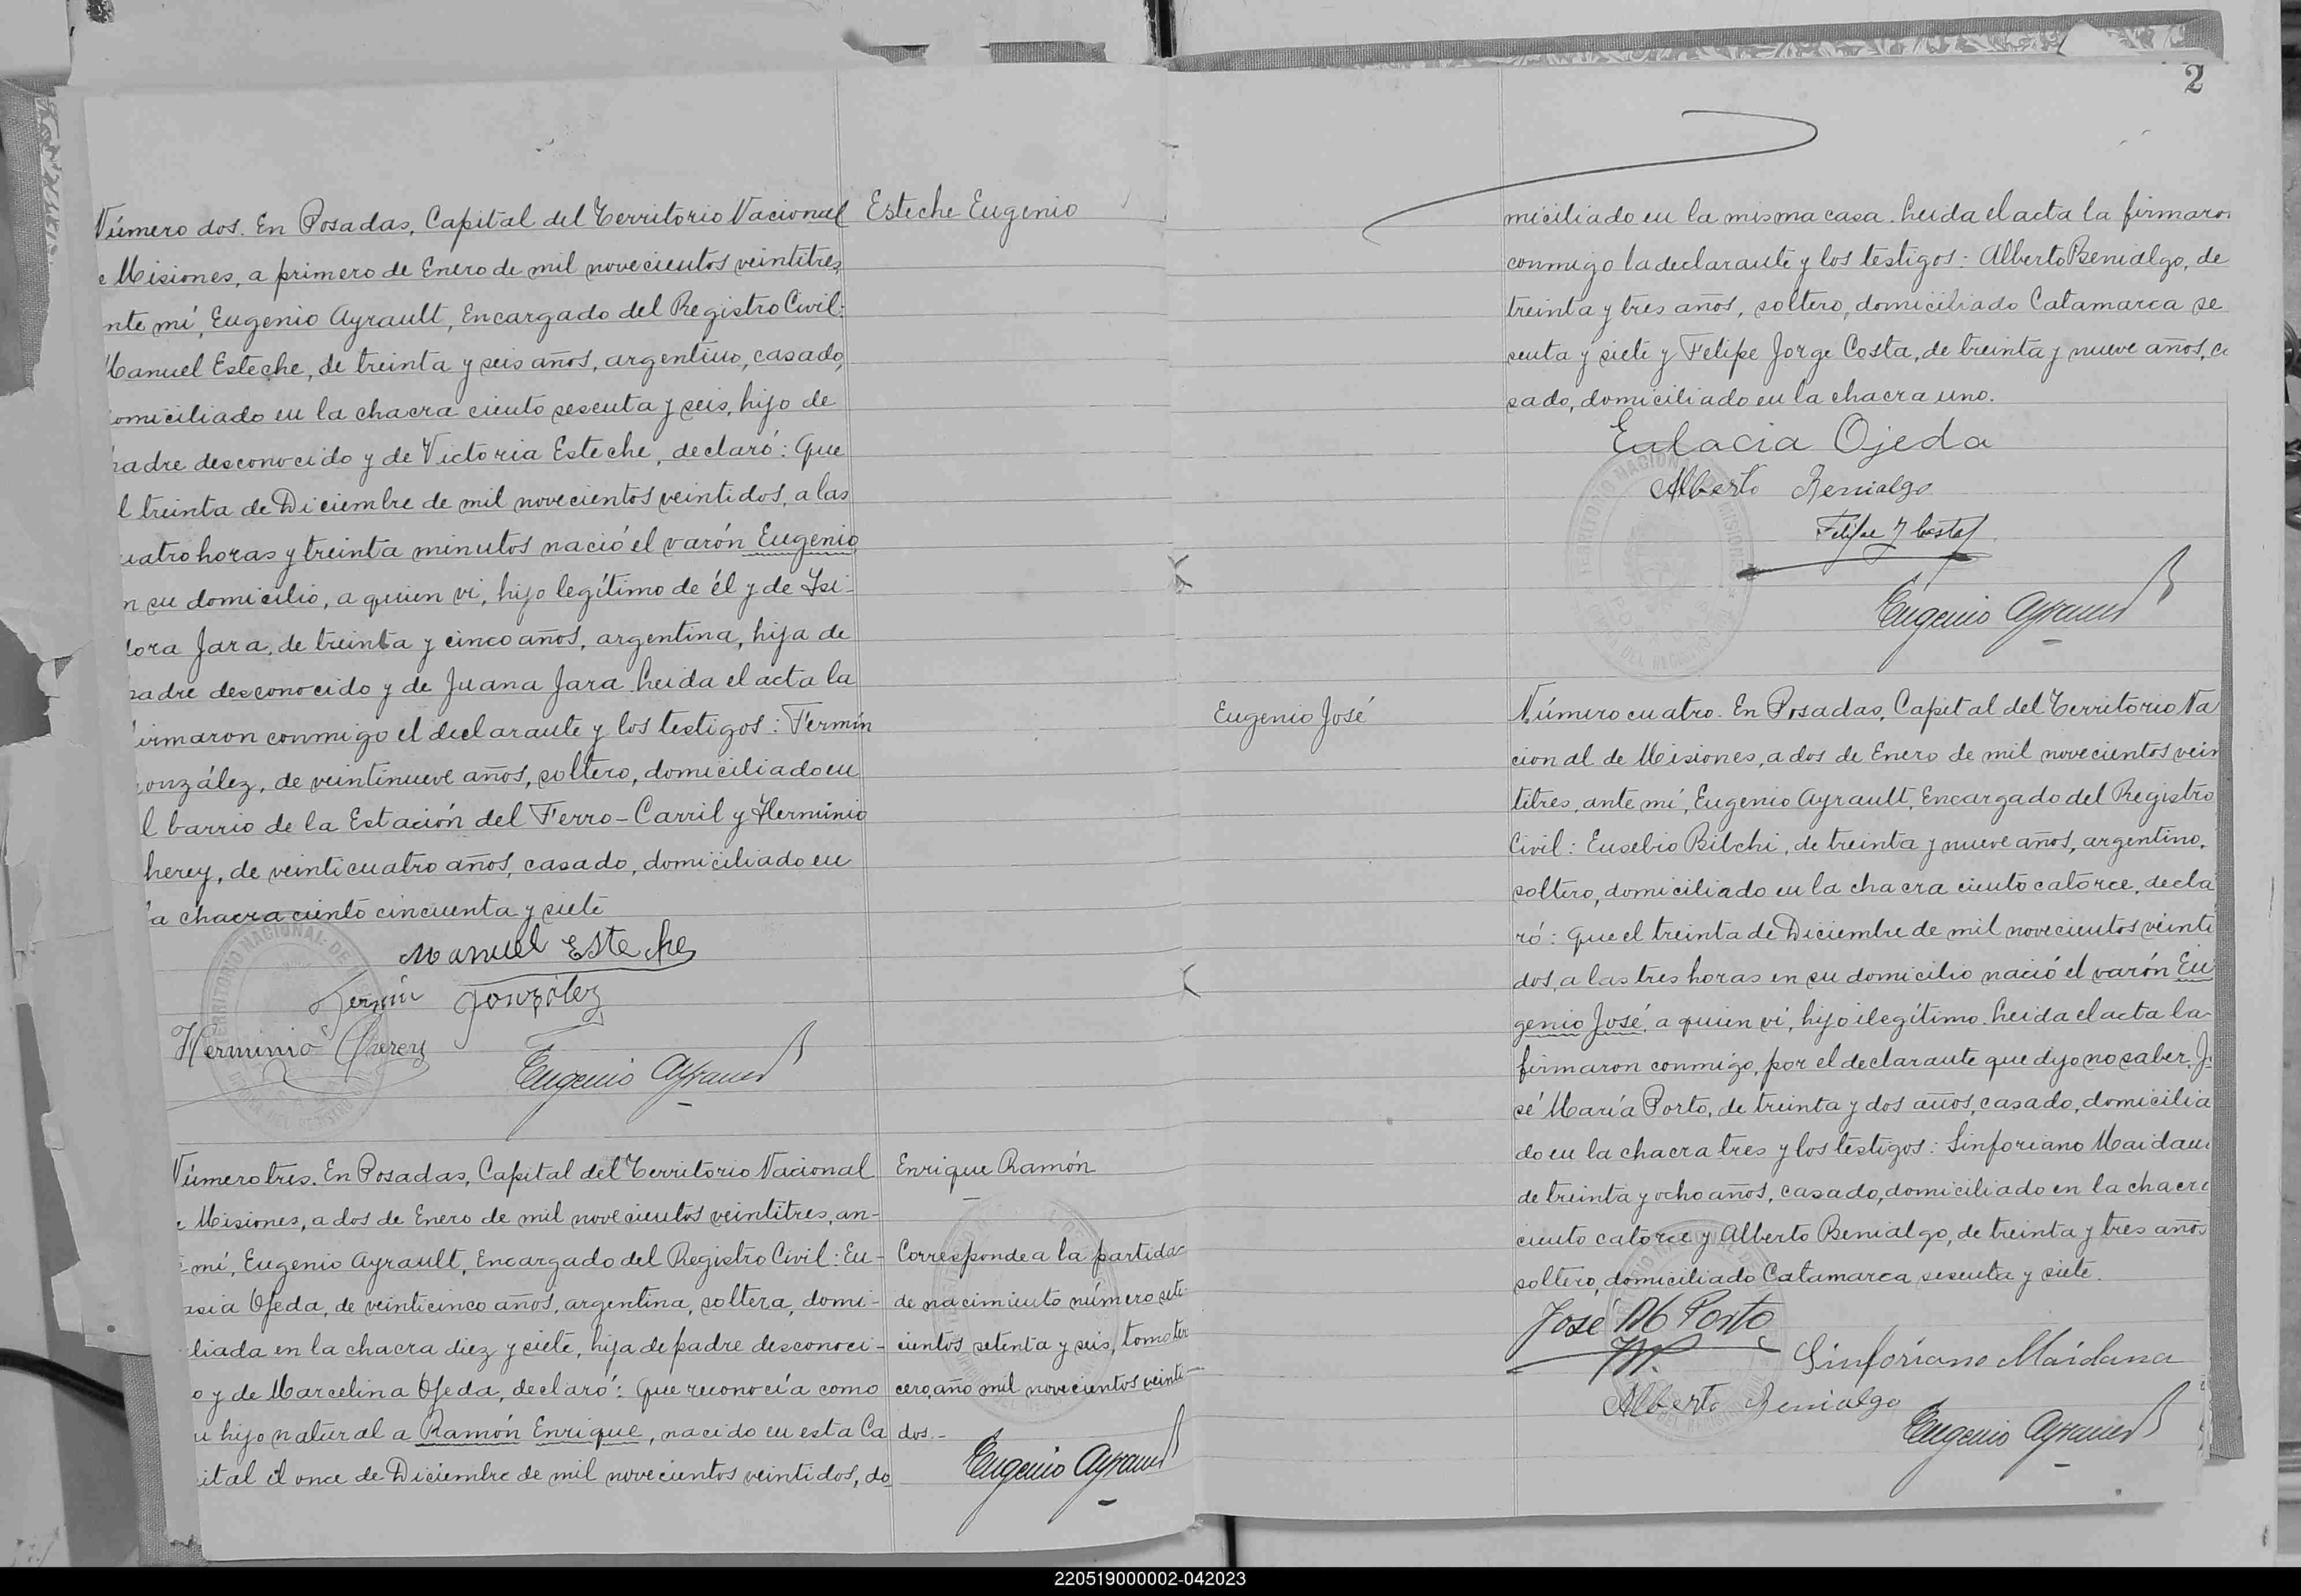 Número dos. En Posadas, Capital del Territorio Nacional
e Misiones, a primero de Enero de mil novecientos veintitres,
nte mí, Eugenio Ayrault, Encargado del Registro Civil:
Manuel Esteche, de treinta y seis años, argentino, casado,
omiciliado en la chacra ciento sesenta y seis, hijo de
padre desconocido y de Victoria Esteche, declaró: Que
l treinta de Diciembre de mil novecientos veintidos, a las
uatro horas y treinta minutos nació el varón Eugenio
n su domicilio, a quien vi, hijo legítimo de él y de Isi-
dora Jara, de treinta y cinco años, argentina, hija de
padre desconocido y de Juana Jara. Leida el acta la
firmaron conmigo el declarante y los testigos: Fermín
onzález, de veintinueve años, soltero, domiciliado en
l barrio de la Estación del Ferro-Carril y Herminio
herey, de veinticuatro años, casado, domiciliado en
la chacra ciento cincuenta y siete
Manuel Esteche
Fermín González
Herminio Cherey
Eugenio Ayrault
Esteche Eugenio
Número tres. En Posadas, Capital del Territorio Nacional
e Misiones, a dos de Enero de mil novecientos veintitres, an-
mí, Eugenio Ayrault, Encargado del Registro Civil: Eu-
asia Ojeda, de veinticinco años, argentina, soltera, domi-
liada en la chacra diez y siete, hija de padre desconoci-
o y de Marcelina Ojeda, declaró: Que reconocía como
u hijo natural a Ramón Enrique, nacido en esta Ca
ital el once de Diciembre de mil novecientos veintidos, do
Enrique Ramón
Corresponde a la partida
de nacimiento número sete
cientos setenta y seis, tomo ter
cero, año mil novecientos veinti-
dos.-
Eugenio Ayrault
2
miciliado en la misma casa. Leida el acta la firmaron
conmigo la declarante y los testigos: Alberto Benialgo, de
treinta y tres años, soltero, domiciliado Catamarca se
senta y siete y Felipe Jorge Costa, de treinta y nueve años, ca
sado, domiciliado en la chacra uno.
Eulacia Ojeda
Alberto Benialgo
Felipe J Costa
Eugenio Ayrault
Eugenio José
Número cuatro. En Posadas, Capital del Territorio Na
cional de Misiones, a dos de Enero de mil novecientos vein
titres, ante mí, Eugenio Ayrault, Encargado del Registro
Civil: Eusebio Bilchi, de treinta y nueve años, argentino,
soltero, domiciliado en la chacra ciento catorce, decla
ró: Que el treinta de Diciembre de mil novecientos veinti
dos, a las tres horas en su domicilio nació el varón Eu
genio José, a quien vi, hijo ilegítimo. Leida el acta la
firmaron conmigo, por el declarante que dijo no saber, Jo
sé María Porto, de treinta y dos años, casado, domicilia
do en la chacra tres y los testigos: Sinforiano Maidana
de treinta y ocho años, casado, domiciliado en la chacra
ciento catorce y Alberto Benialgo, de treinta y tres años
soltero, domiciliado Catamarca sesenta y siete.
José M Porto
Sinforiano Maidana
Alberto Benialgo
Eugenio Ayrault
220519000002-042023